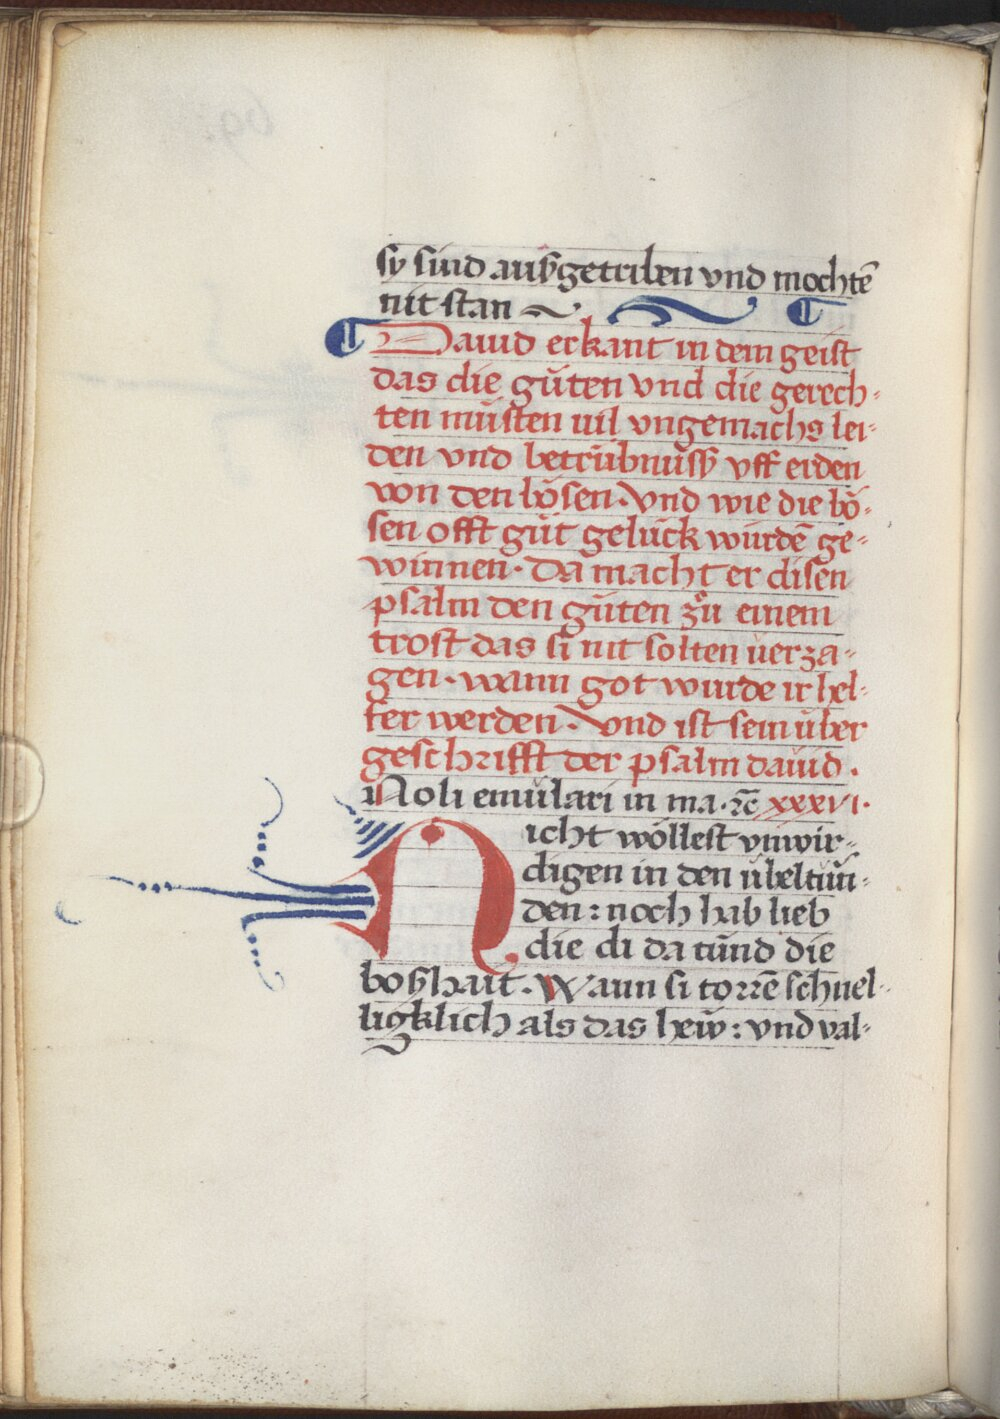 sy sind auſzgetriben vnd mochtē
nit ſtan
Dauid erkant in dem geiſt
das die gůten vnd die gerech-
ten můſten uil vngemachs lei-
den vnd betrübnüſſz vff erden
von den böſen. Vnd wie die bö-
ſen offt gůt gelück wurdē ge-
winnen. Da macht er diſen
pſalm den gůten zů einem
troſt das ſi nit ſolten uerza-
gen. wann got wurde ir hel-
fer werden. Vnd iſt sein über
geſchrifft der pſalm dauid.
Noli emulari in ma. rc̄ xxxvi.
Nicht wölleſt vnwir-
digen in den übeltůn-
den: noch hab lieb
die di da tůnd die
boſzhait. Wann ſi torrē ſchnel-
ligklich als das heẅ: vnd val-